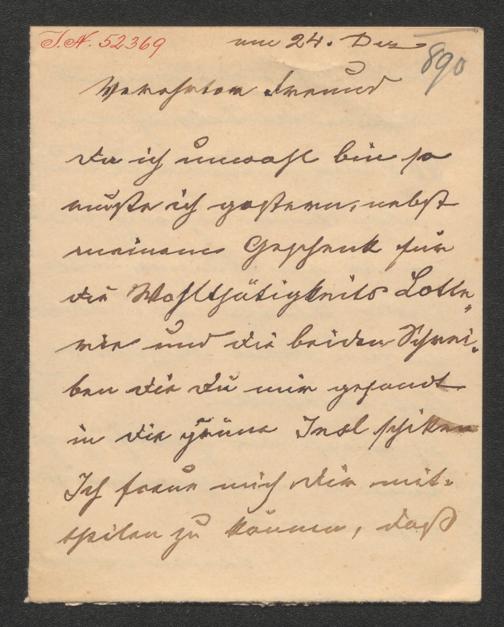 I.N. 52369
am 24. Dez
890
Verehrter Freund
Da ich unwohl bin so
mußte ich gestern, nebst
meinem Geschenk für
die Wohlthätigkeits Lotte„
rie und die beiden Schrei„
ben die Du mir gesandt
in die grüne Insl schikken
Ich freue mich Dir mit„
theilen zu können, daß